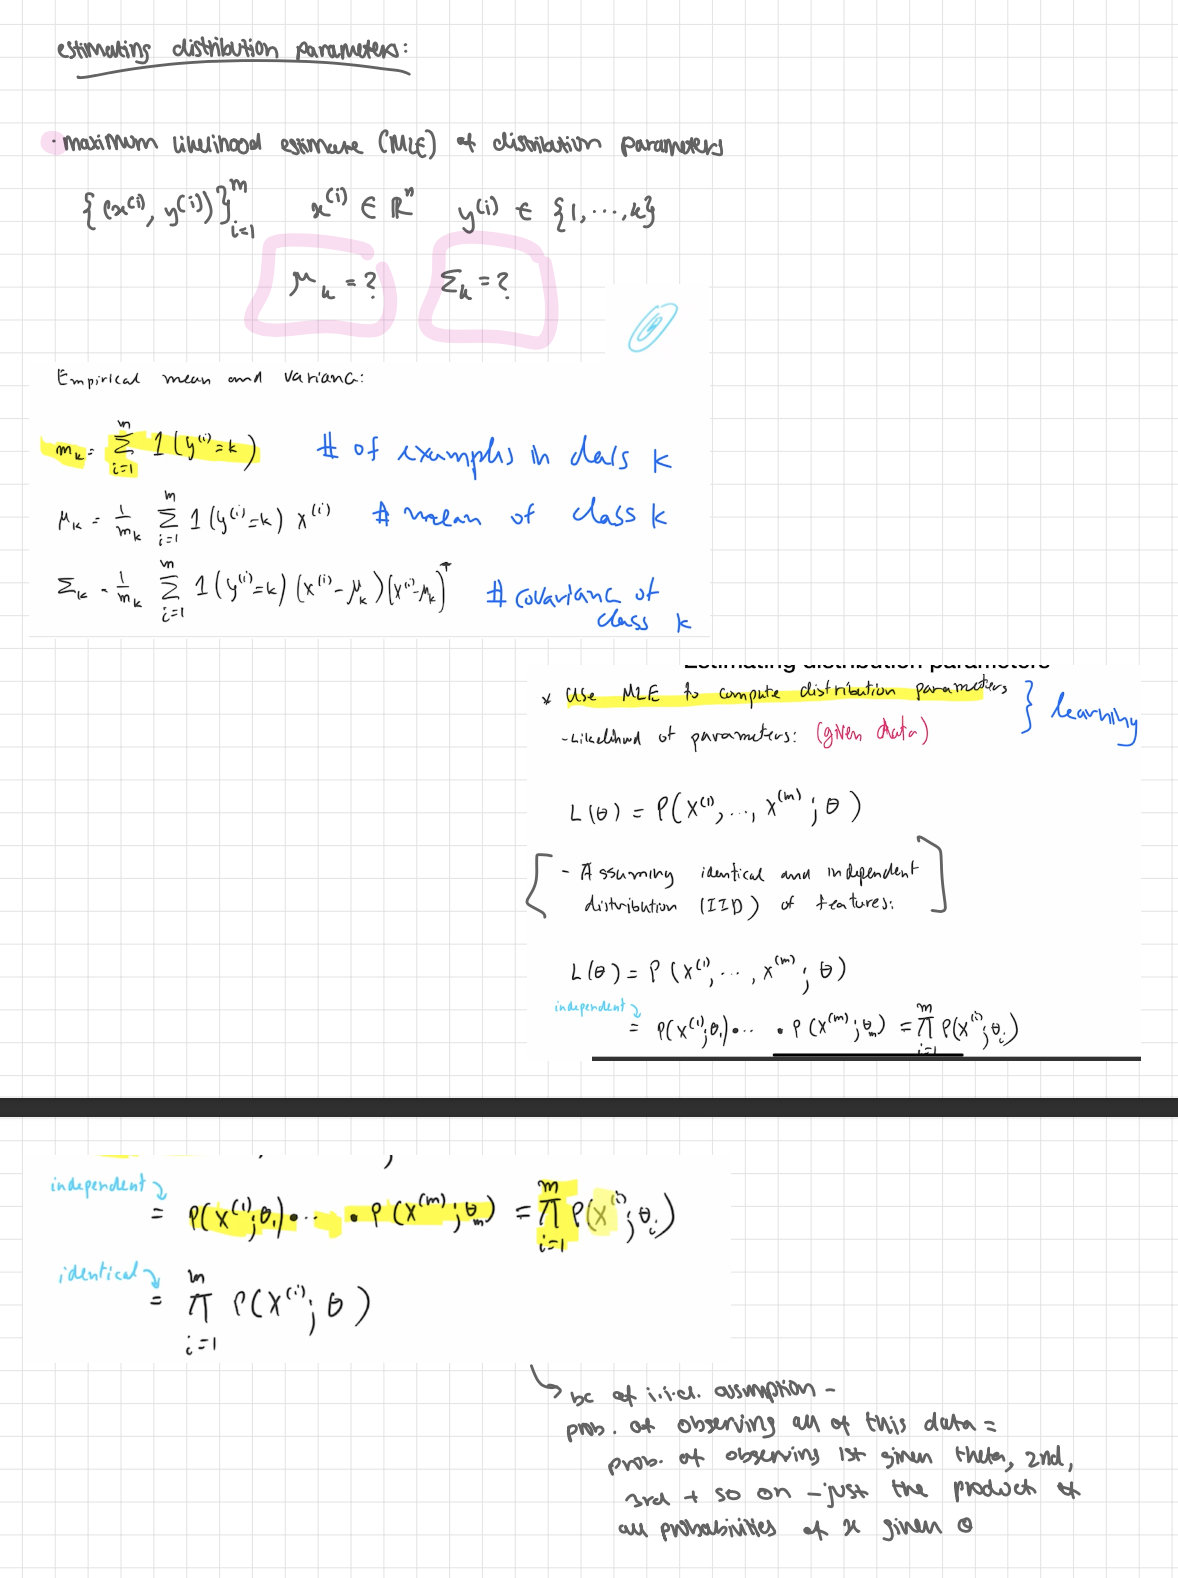 estimating distribution parameters:
· maximum likelihood estimate (MLE) of distribution parameters
{(x^(i), y^(i))}_{i=1}^m   x^(i) ∈ ℝ^n   y^(i) ∈ {1, ..., k}
μ_k = ?   Σ_k = ?
Empirical mean and variance:
m_k = Σ_{i=1}^m 1(y^(i)=k)   # of examples in class k
μ_k = 1/m_k Σ_{i=1}^m 1(y^(i)=k) x^(i)   # mean of class k
Σ_k = 1/m_k Σ_{i=1}^m 1(y^(i)=k)(x^(i)-μ_k)(x^(i)-μ_k)^T   # covariance of
class k
Estimating distribution parameters
* Use MLE to compute distribution parameters } learning
- Likelihood of parameters: (given data)
L(θ) = P(x^(1), ..., x^(m); θ)
[ - Assuming identical and independent ]
distribution (IID) of features:
L(θ) = P(x^(1), ..., x^(m); θ)
independent
= P(x^(1); θ_1) · ... · P(x^(m); θ_m) = Π_{i=1}^m P(x^(i); θ_i)
independent
= P(x^(1); θ_1) · ... · P(x^(m); θ_m) = Π_{i=1}^m P(x^(i); θ_i)
identical
= Π_{i=1}^m P(x^(i); θ)
↳ bc of i.i.d. assumption -
prob. of observing all of this data =
prob. of observing 1st given theta, 2nd,
3rd + so on - just the product of
all probabilities of x given θ